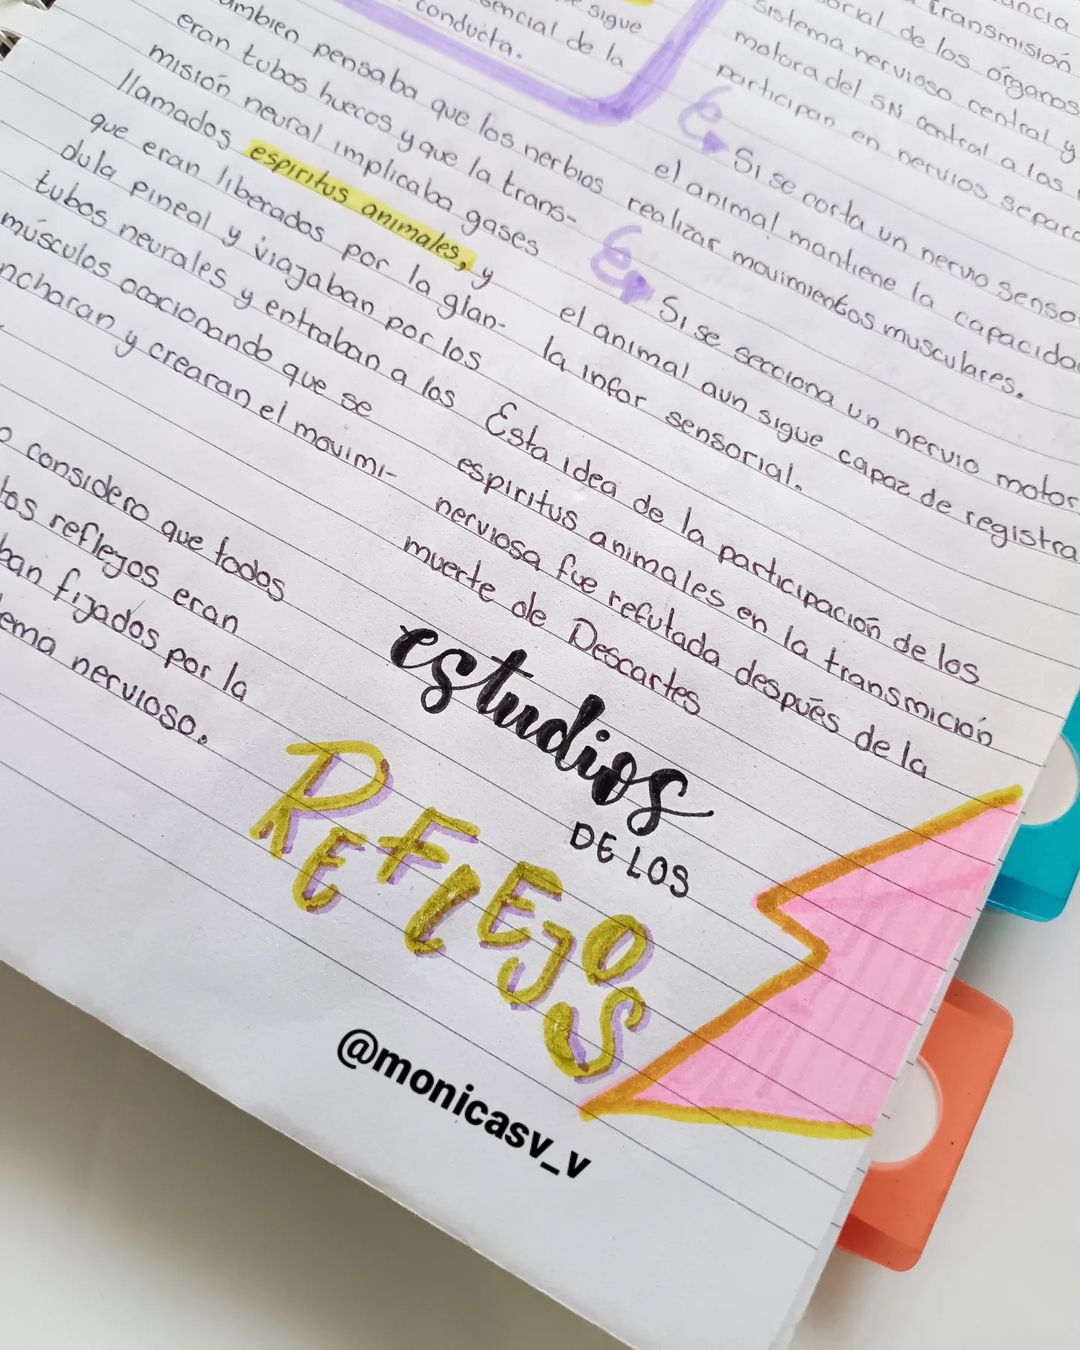 sigue
sencial de la
conducta.
ambien pensaba que los nerbios
eran tubos huecos y que la trans-
misión neural implicaba gases
llamados espiritus animales, y
que eran liberados por la glan-
dula pineal y viajaban por los
tubos neurales y entraban a los
músculos ocacionando que se
ncharan y crearan el movimi-
o considero que todos
tos reflejos eran
ban fijados por la
ema nervioso.
ancia
transmisión
orial de los órganos
sistema nervioso central y
motora del SN central a las
participan en nervios separa
Si se corta un nervio senso
el animal mantiene la capacida
realizar movimientos musculares.
Si se secciona un nervio motor
el animal aun sigue capaz de registra
la infor sensorial.
Esta idea de la participación de los
espiritus animales en la transmición
nerviosa fue refutada después de la
muerte de Descartes
estudios
DE LOS
REFLEJOS
@monicasv_v